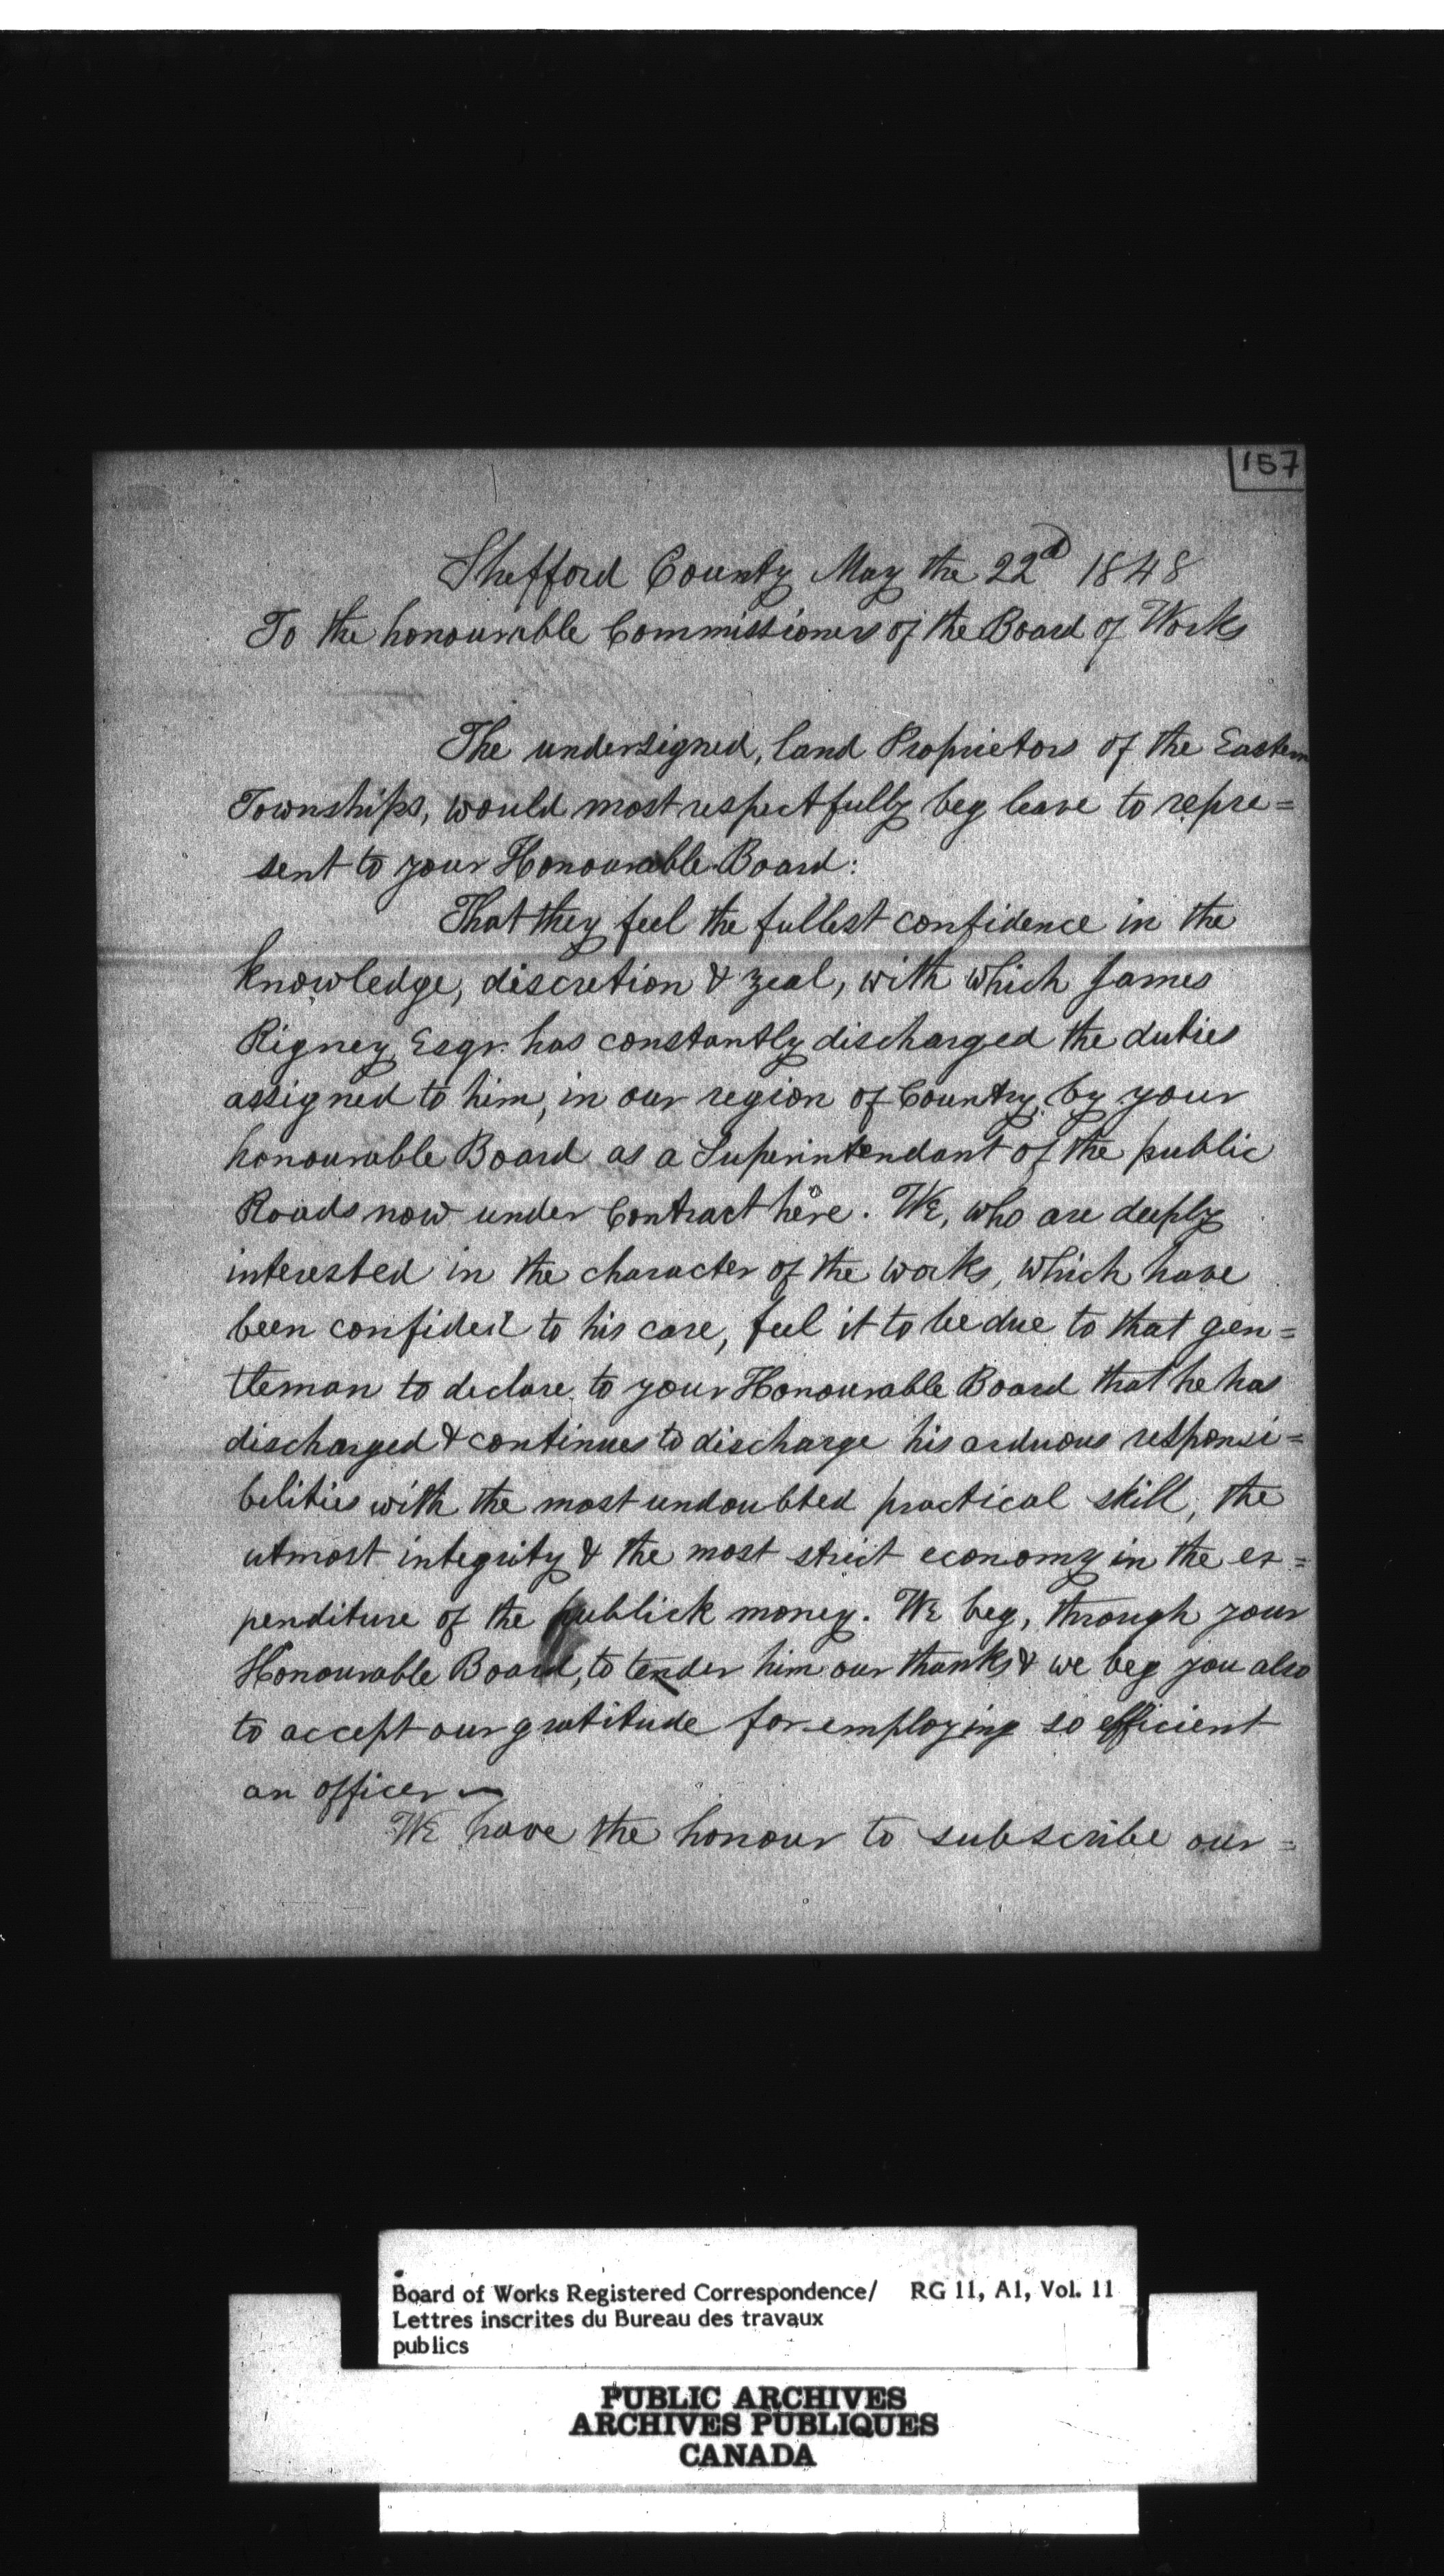 157
Shefford County May the 22d 1848
To the honourable Commissioners of the Board of Works
The undersigned, land Proprietors of the Eastern
Townships, would most respectfully beg leave to repre=
sent to your Honourable Board:
That they feel the fullest confidence in the
knowledge, discretion & zeal, with which James
Rigney Esqr. has constantly discharged the duties
assigned to him, in our region of Country, by your
honourable Board as a Superintendant of the public
Roads now under Contract here. We, who are deeply
interested in the character of the works, which have
been confided to his care, feel it to be due to that gen=
tleman to declare to your Honourable Board that he has
discharged & continues to discharge his arduous responsi=
bilities with the most undoubted practical skill, the
utmost integrity & the most strict economy in the ex=
penditure of the publick money. We beg, through your
Honourable Board, to tender him our thanks & we beg you also
to accept our gratitude for employing so efficient
an officer —
We have the honour to subscribe our=
Board of Works Registered Correspondence/ RG 11, A1, Vol. 11
Lettres inscrites du Bureau des travaux
publics
PUBLIC ARCHIVES
ARCHIVES PUBLIQUES
CANADA